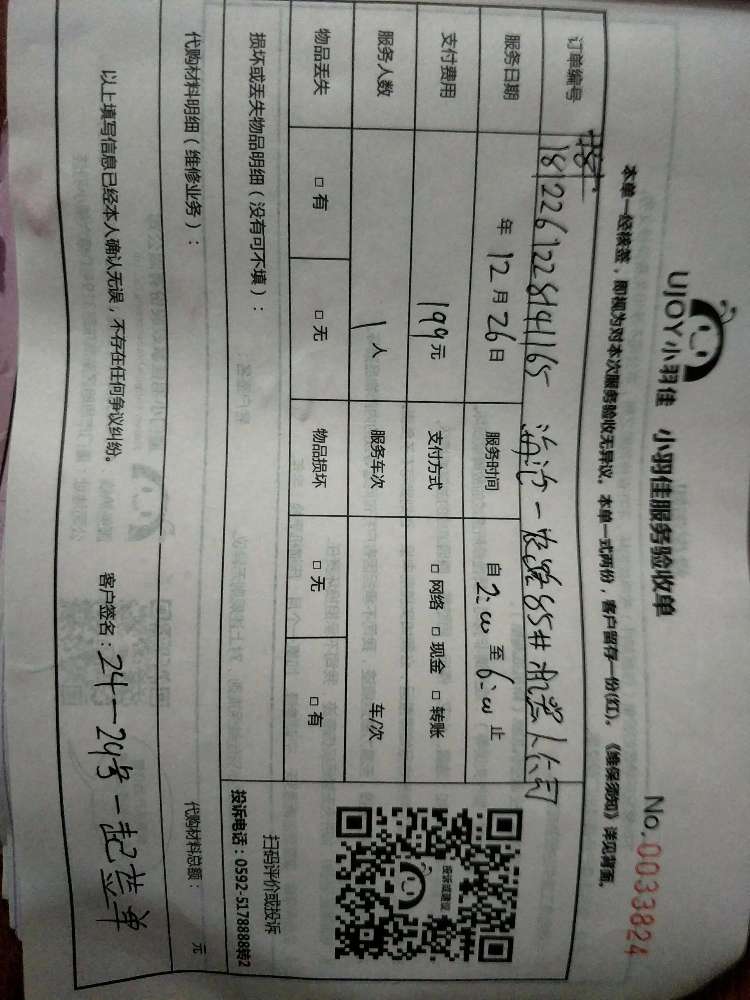 UJOY小羽佳 小羽佳服务验收单
No. 0033824
本单一经核签，即视为对本次服务验收无异议。本单一式两份，客户留存一份(红)。《维保须知》详见背面。
订单编号 181226122814165 一农路85#机器人公司
服务日期 年 12 月 26 日 服务时间 自 2:00 至 6:00 止
支付费用 199 元 支付方式 □ 网络 □ 现金 □ 转账
服务人数 1 人 服务车次 车/次
物品丢失 □ 有 □ 无 物品损坏 □ 无 □ 有
投诉或建议
扫码评价或投诉
投诉电话：0592-5178888转2
损坏或丢失物品明细（没有可不填）：
代购材料明细（维修业务）： 代购材料总额： 元
以上填写信息已经本人确认无误，不存在任何争议纠纷。 客户签名：24-29号一起签单